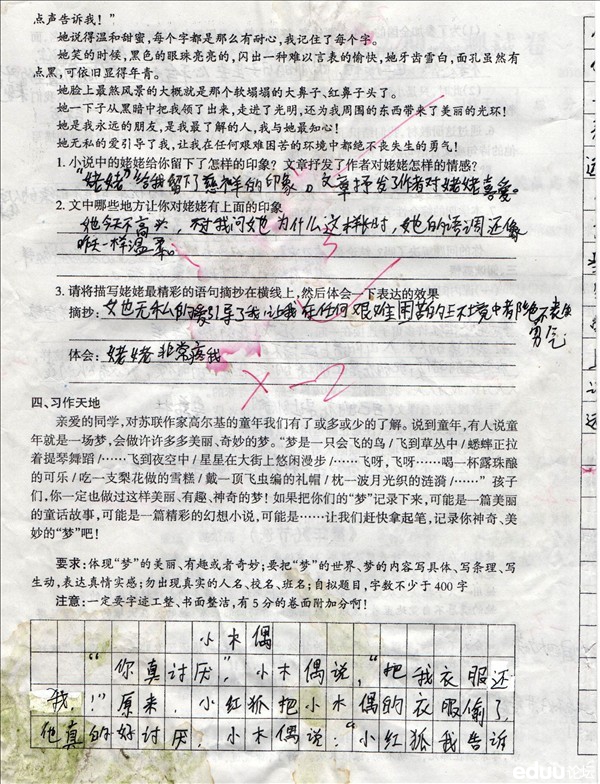 点声告诉我！”
她说得温和甜蜜，每个字都是那么有耐心，我记住了每个字。
她笑的时候，黑色的眼珠亮亮的，闪出一种难以言表的愉快，她牙齿雪白，面孔虽然有
点黑，可依旧显得年青。
她脸上最煞风景的大概就是那个软塌塌的大鼻子、红鼻子头了。
她一下子从黑暗中把我领了出来，走进了光明，还为我周围的东西带来了美丽的光环！
她是我永远的朋友，是我最了解的人，我与她最知心！
她无私的爱引导了我，让我在任何艰难困苦的环境中都绝不丧失生的勇气！
1. 小说中的姥姥给你留下了怎样的印象？文章抒发了作者对姥姥怎样的情感？
“姥姥”给我留下了慈祥的印象。文章抒发了作者对姥姥喜爱。
2. 文中哪些地方让你对姥姥有上面的印象
她今天不高兴，对我问她为什么这样时，她的语调还像
昨天一样温柔。
3. 请将描写姥姥最精彩的语句摘抄在横线上，然后体会一下表达的效果
摘抄：她无私的爱引导了我，让我在任何艰难困苦的环境中都绝不丧失
勇气
体会：姥姥非常疼我
四、习作天地
亲爱的同学，对苏联作家高尔基的童年我们有了或多或少的了解。说到童年，有人说童
年就是一场梦，会做许许多多美丽、奇妙的梦。“梦是一只会飞的鸟/飞到草丛中/蟋蟀正拉
着提琴舞蹈/……飞到夜空中/星星在大街上悠闲漫步/……飞呀，飞呀……喝一杯露珠酿
的可乐/吃一支梨花做的雪糕/戴一顶飞虫编的礼帽/枕一波月光织的涟漪/……”孩子
们，你一定也做过这样美丽、有趣、神奇的梦！如果把你们的“梦”记录下来，可能是一篇美丽
的童话故事，可能是一篇精彩的幻想小说，可能是……让我们赶快拿起笔，记录你神奇、美
妙的“梦”吧！
要求：体现“梦”的美丽、有趣或者奇妙；要把“梦”的世界、梦的内容写具体、写条理、写
生动，表达真情实感；勿出现真实的人名、校名、班名；自拟题目，字数不少于400字
注意：一定要字迹工整、书面整洁，有5分的卷面附加分啊！
小木偶
“你真讨厌”，小木偶说，“把我衣服还
我！”原来，小红狐把小木偶的衣服偷了，
他真的好讨厌，小木偶说：“小红狐我告诉
eduu论坛